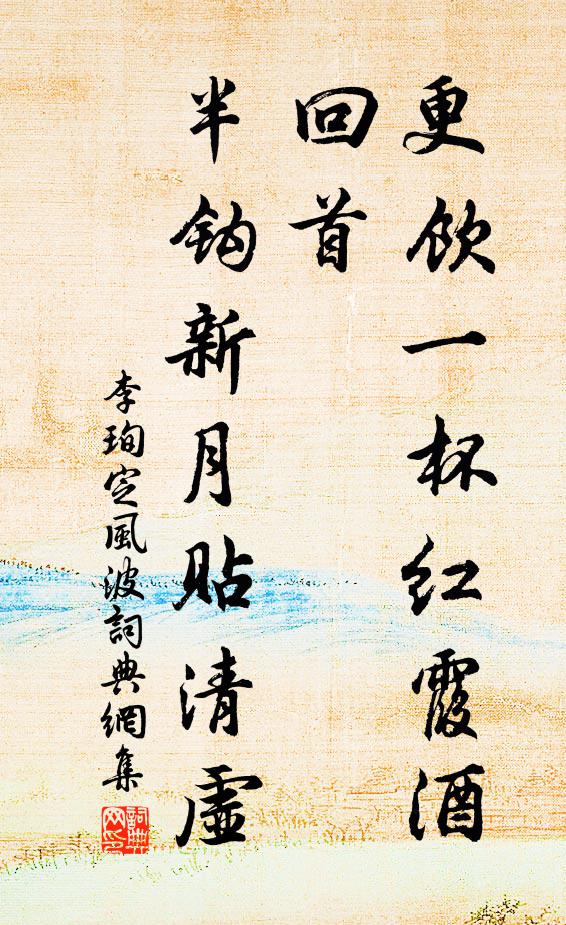 更飲一杯紅霞酒
回首
半鈎新月貼清虛
李珣定風波詞典網集
詞典網印